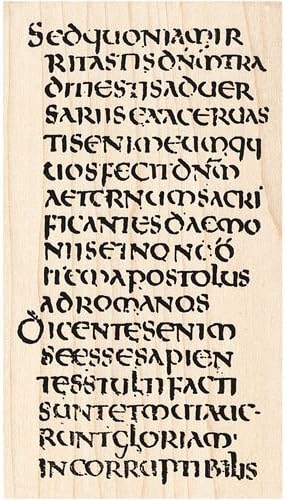 SEDQUONIAMIR
RITASTISDN̄M̄TRA
DITIESTISADUER
SARIISEXACERUAS
TISENIMEUMQUI
UOSFECITDN̄M
AETERNUMSACRI
FICANTESDAEMO
NIISETNONDŌ
ITEMAPOSTOLUS
ADROMANOS
DICENTESENIM
SEESSESAPIEN
TESSTULTIFACTI
SUNTETMUTAUE-
RUNTGLORIAM·
INCORRUPTIBILIS